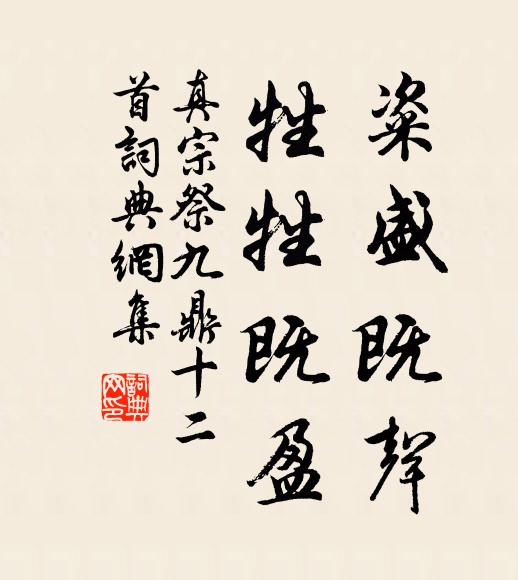 粢盛既聲
牲牲既盈
真宗祭九鼎十二
首詞典網集
詞典
网印